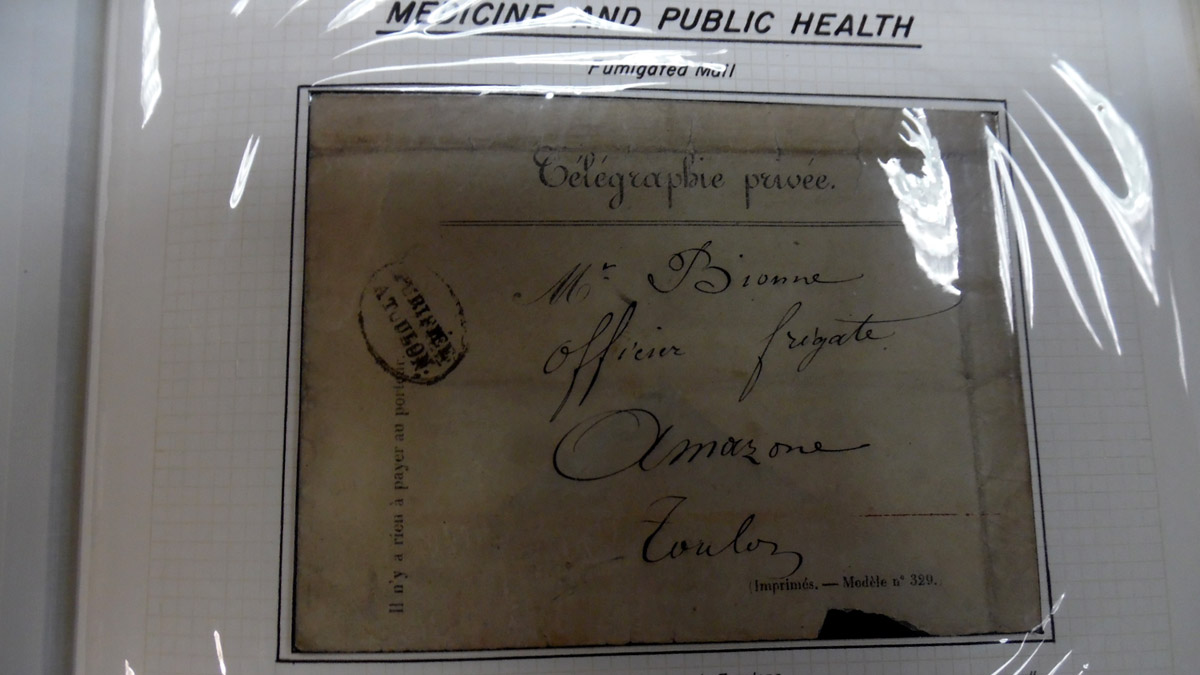 MEDICINE AND PUBLIC HEALTH
Fumigated Mail
Télégraphie privée.
PURIFIÉE
A TOULON.
Mr Bionne
officier frégate
Amazone
Toulon
Il n'y a rien à payer au porteur
(Imprimés. — Modèle n° 329.)